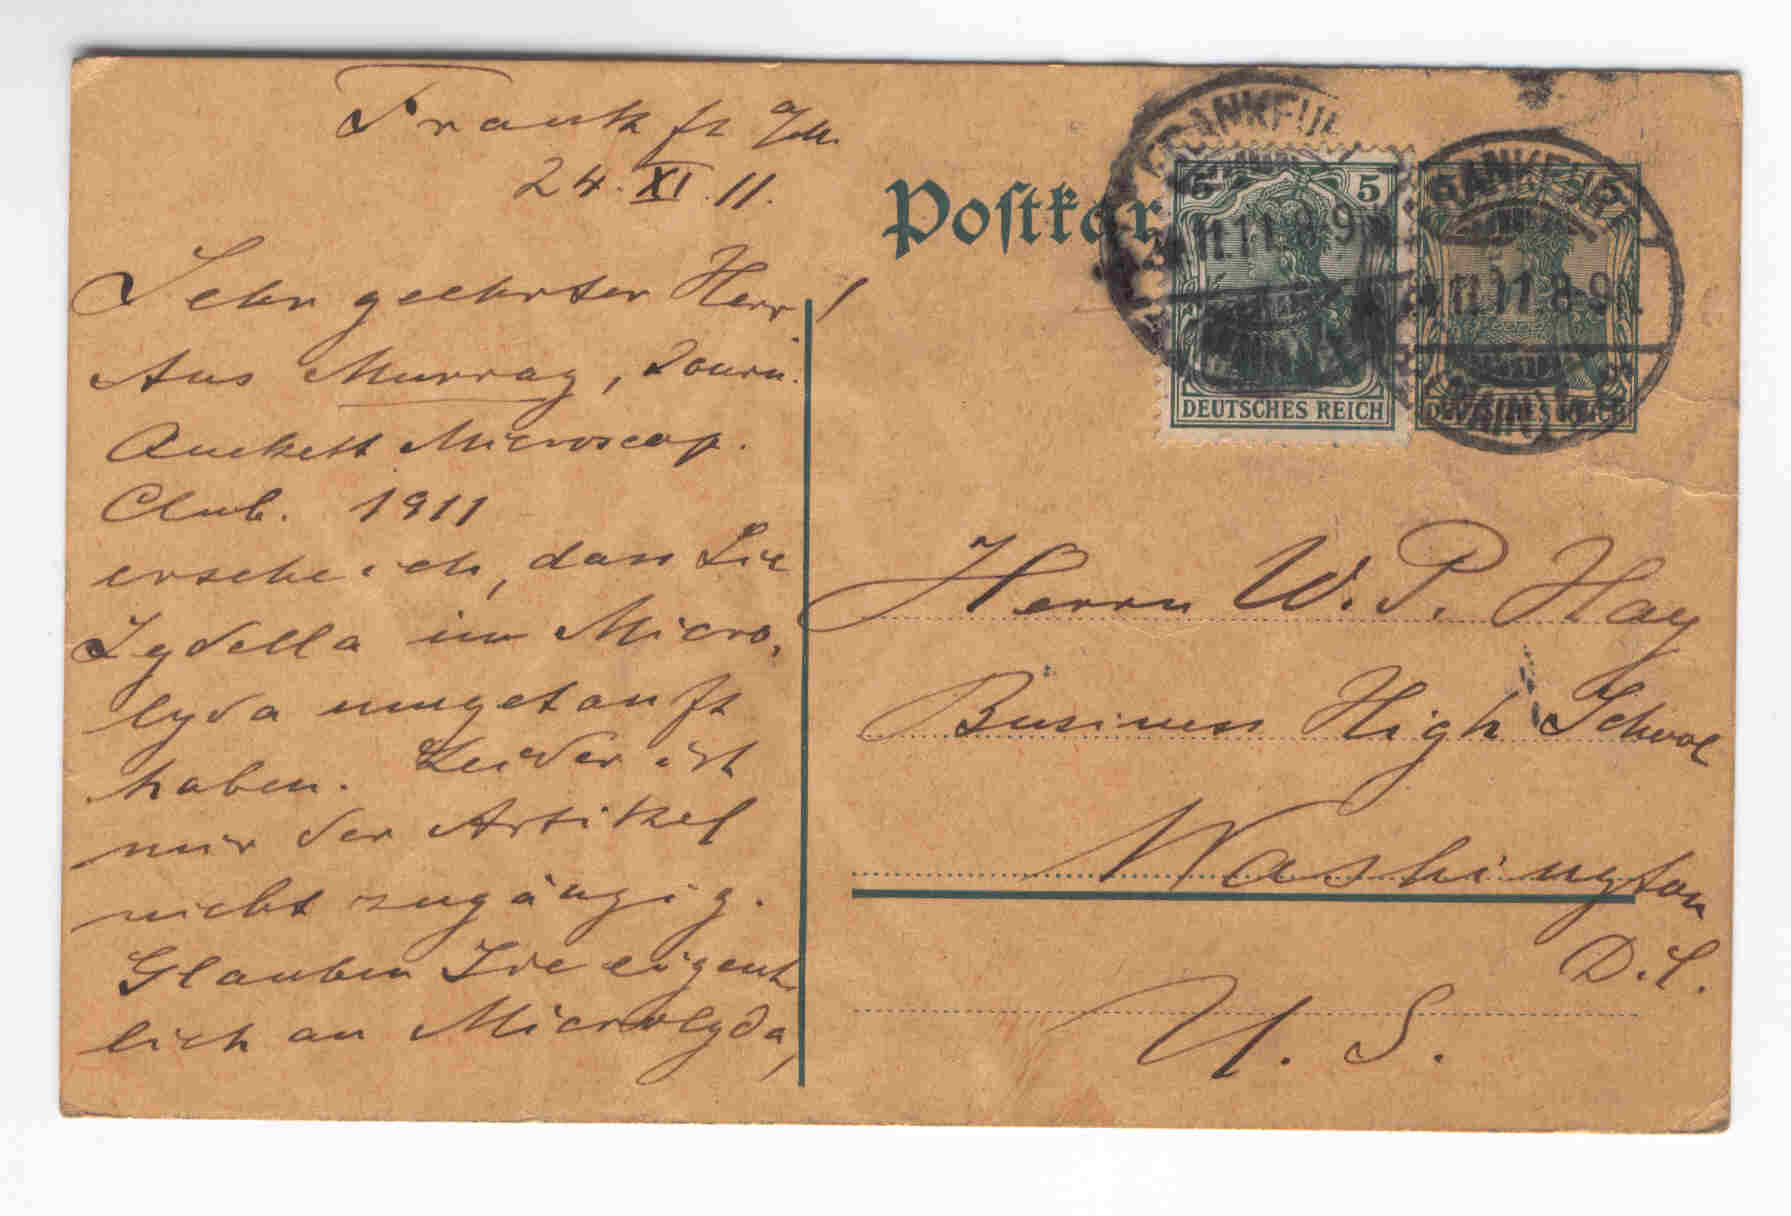 Frankft a/M.
24. XI. 11.
Sehr geehrter Herr!
Aus Murray, Journ.
Quekett Microscop.
Club. 1911
ersehe ich, dass Sie
Lydella in Micro,
lyda umgetauft
haben. Leider ist
mir der Artikel
nicht zugängig.
Glauben Sie eigent
lich an Microlyda,
Postkar
5 5
DEUTSCHES REICH
5 5
DEUTSCHES REICH
FRANKFU
11.11.8-9
(MAIN)
FRANKFURT
11.11.8-9
(MAIN)
Herrn W. P. Hay
Business High School
Washington
D.C.
U. S.